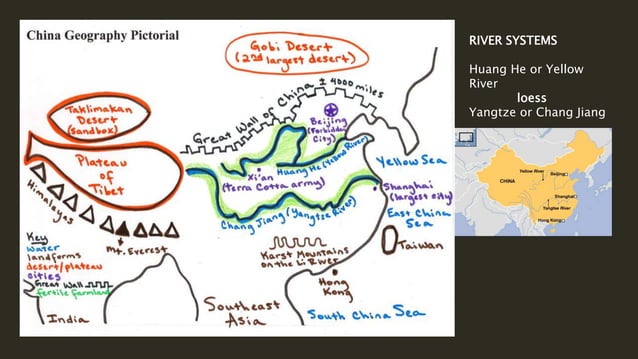 China Geography Pictorial
Gobi Desert
(2nd largest desert)
Great Wall of China ± 4000 miles
Taklimakan
Desert
(sandbox)
Beijing
(Forbidden
City)
Plateau
of
Tibet
Himalayas
Huang He (Yellow River)
Yellow Sea
Xi'an
(terra Cotta army)
Shanghai
(largest city)
Chang Jiang (Yangtze River)
East China
Sea
Mt. Everest
Karst Mountains
on the Li River
Taiwan
Hong
Kong
Key
water
landforms
desert/plateau
cities
Great Wall
fertile farmland
India
Southeast
Asia
South China Sea
RIVER SYSTEMS
Huang He or Yellow
River
loess
Yangtze or Chang Jiang
CHINA
Yellow River
Beijing
Shanghai
Yangtze River
Hong Kong